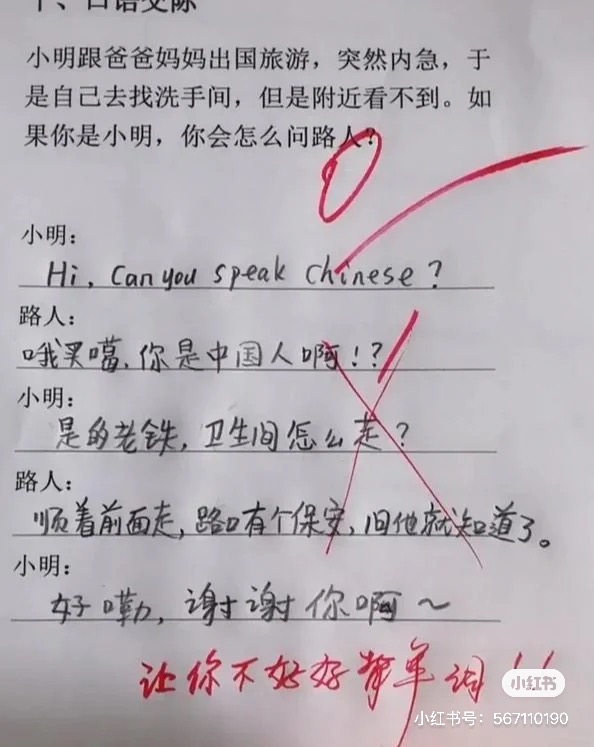 十、口语交际
小明跟爸爸妈妈出国旅游，突然内急，于
是自己去找洗手间，但是附近看不到。如
果你是小明，你会怎么问路人？
0
小明：
Hi, Can you speak chinese ?
路人：
哦买噶，你是中国人啊！？
小明：
是的老铁，卫生间怎么走？
路人：
顺着前面走，路口有个保安，问他就知道了。
小明：
好嘞，谢谢你啊～
让你不好好背单词！！
小红书
小红书号：567110190